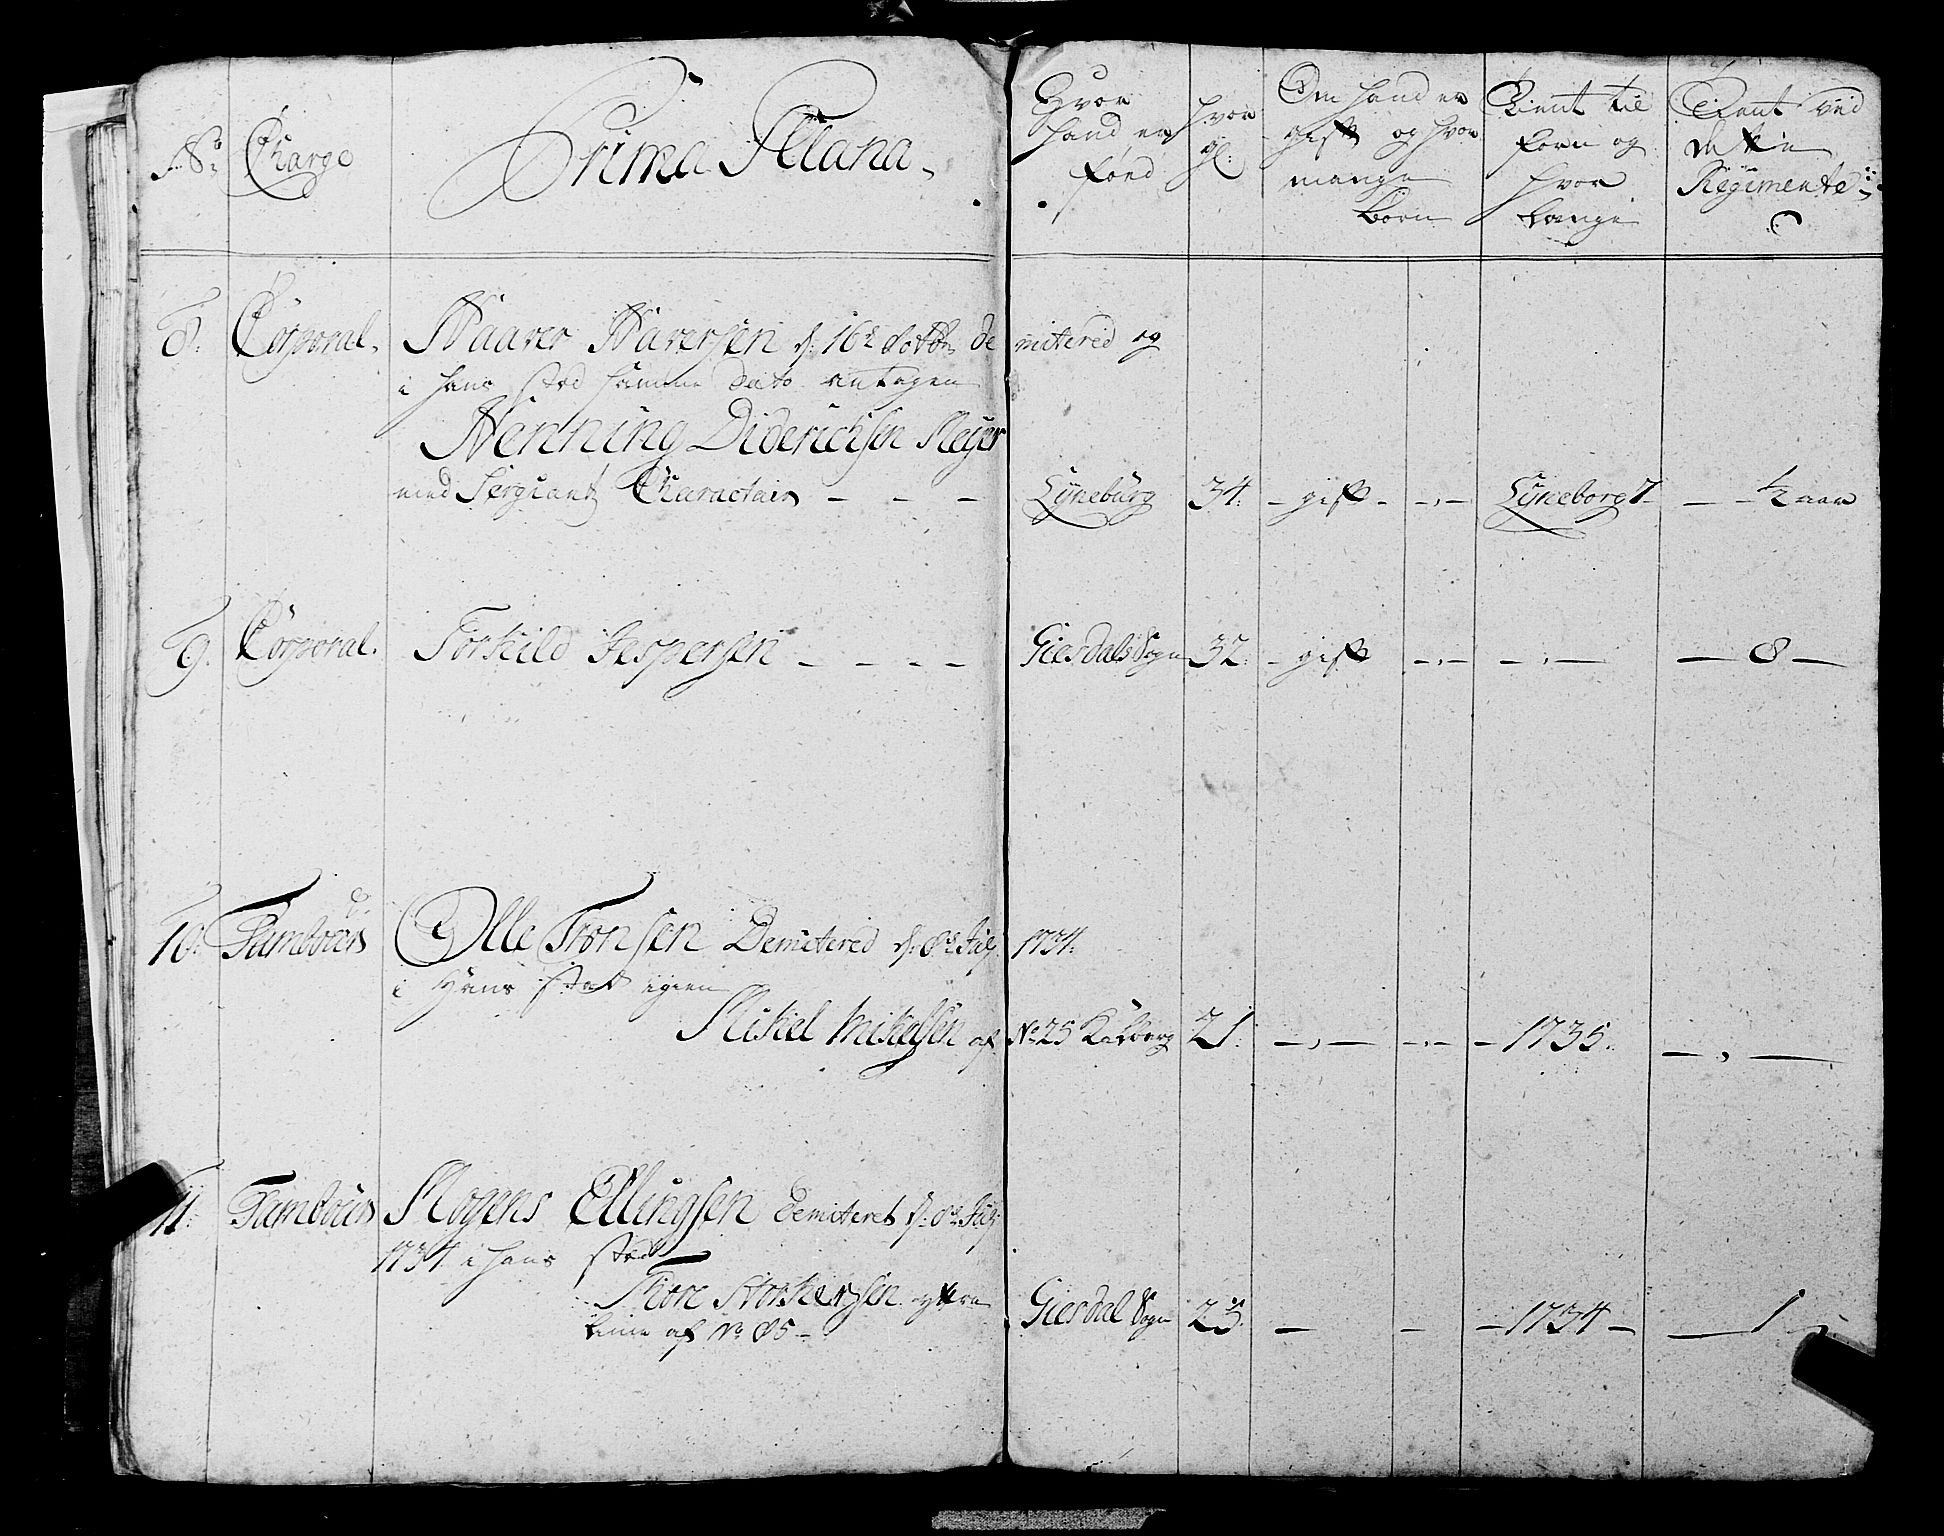 No Charge Prima Plana.
Hvor hand er fönd
hvor gl:
Om hand er gift og hvor mange Börn
Tient til forn og hvor længe
Tient ved dette Regimente
8. Corporal. Haaver Haversen d: 16 Octbr demitered og
i hans sted samme dato antagen
Henning Diderichsen Meyer
med Sergiant Charactair – – – Lyneburg 34: – gift – – Lyneborg 7 – – ½ aar
9. Corporal. Torkild Jespersen – – – – Giesdals Sogn 32: – gift – – – – 8 –
10: Tambour Olle Tronsen Demitered d: 8 Julij 1734:
i Hans sted igien
Mikel Mikelsen af No 25 21: – – – 1735: –
11: Tambour Mogens Ellingsen demiteret d: 8 Julij
1734 i hans sted
Tore Storkersen
af No 85 – Giesdal Sogn 25: – – – 1734 – 1